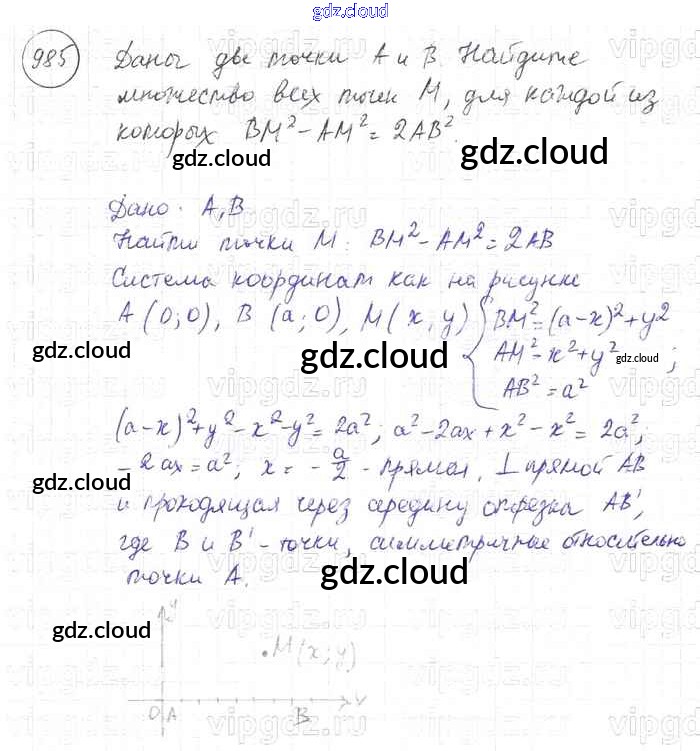 gdz.cloud
985 Даны две точки A и B. Найдите
множество всех точек M, для каждой из
которых BM² - AM² = 2AB².
gdz.cloud gdz.cloud
Дано: A, B
Найти точки M: BM² - AM² = 2AB
Система координат как на рисунке
A (0; 0), B (a; 0), M (x, y) { BM² = (a-x)² + y²
AM² = x² + y² ;
AB² = a²
gdz.cloud gdz.cloud gdz.cloud
(a-x)² + y² - x² - y² = 2a²; a² - 2ax + x² - x² = 2a²;
-2ax = a²; x = -a/2 - прямая, ⊥ прямой AB
gdz.cloud gdz.cloud
и проходящая через середину отрезка AB',
где B и B' - точки, симметричные относительно
точки A.
gdz.cloud
gdz.cloud
y
M(x; y)
O A B x
vipgdz.ru